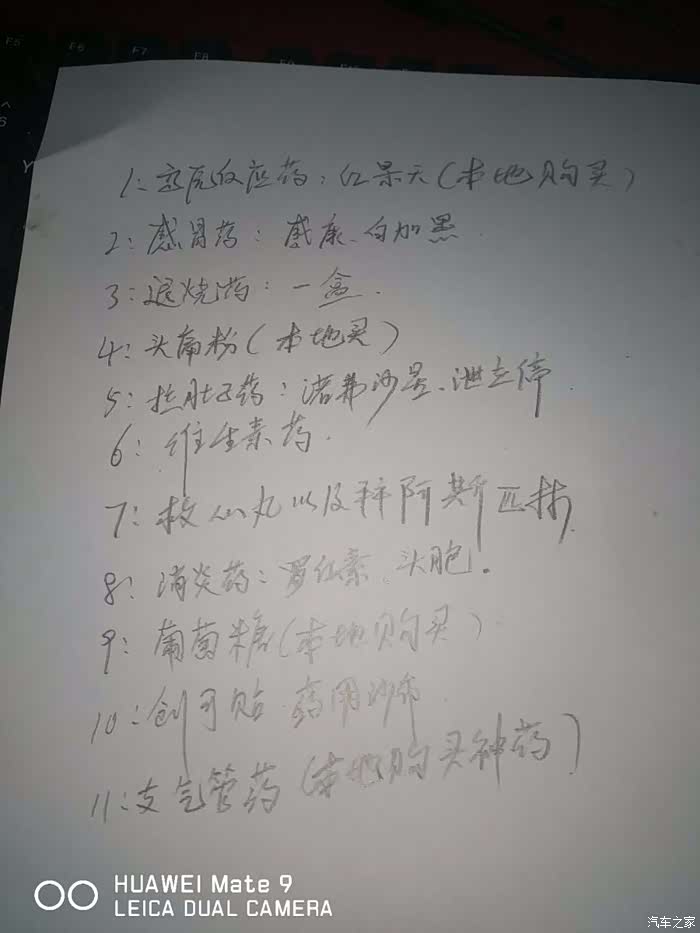 1:高原反应药:红景天(本地购买)
2:感冒药:感康、白加黑
3:退烧药:一盒.
4:头痛粉(本地买)
5:拉肚子药:诺弗沙星、泄立停
6:维生素药.
7:救心丸以及拜阿斯匹林
8:消炎药:罗红素、头胞。
9:葡萄糖(本地购买)
10:创可贴 药用沙布
11:支气管药(本地购买神药)
HUAWEI Mate 9
LEICA DUAL CAMERA
汽车之家